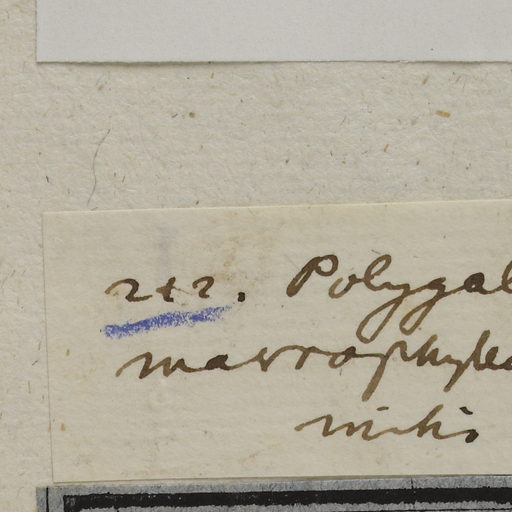 212. Polygal
macrophylla
mihi